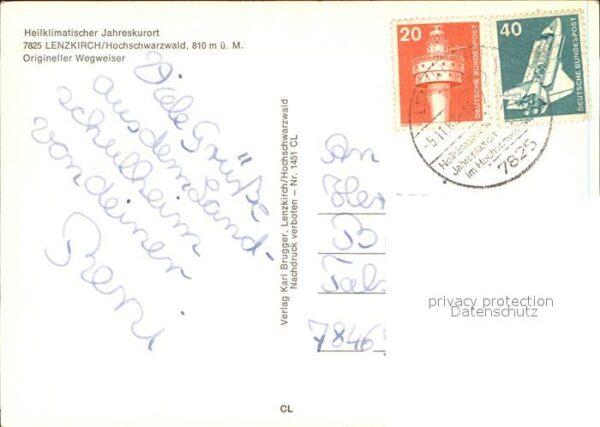 Heilklimatischer Jahreskurort
7825 LENZKIRCH/Hochschwarzwald, 810 m ü. M.
Origineller Wegweiser
Viele Grüße
aus dem Land-
schulheim
von deiner
Reni
Verlag Karl Brugger, Lenzkirch/Hochschwarzwald
Nachdruck verboten – Nr. 1451 CL
CL
20
DEUTSCHE BUNDESPOST
40
DEUTSCHE BUNDESPOST
Jahreskurort
im Hochschwarzwald
7825
An
7846
privacy protection
Datenschutz